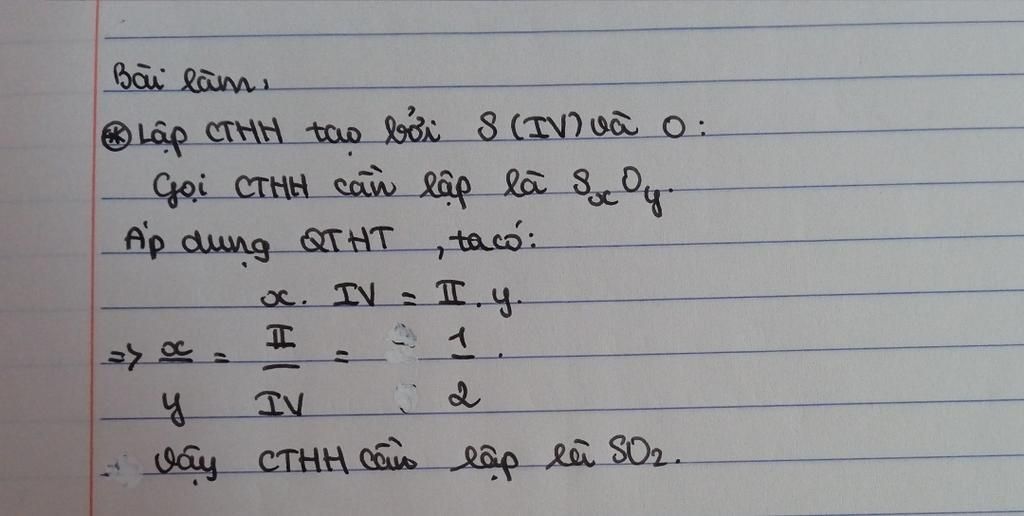 Bài làm,
* Lập CTHH tạo bởi S (IV) và O:
Gọi CTHH cần lập là SxOy.
Áp dụng QTHT, ta có:
x. IV = II. y.
=> x/y = II/IV = 1/2.
Vậy CTHH cần lập là SO2.